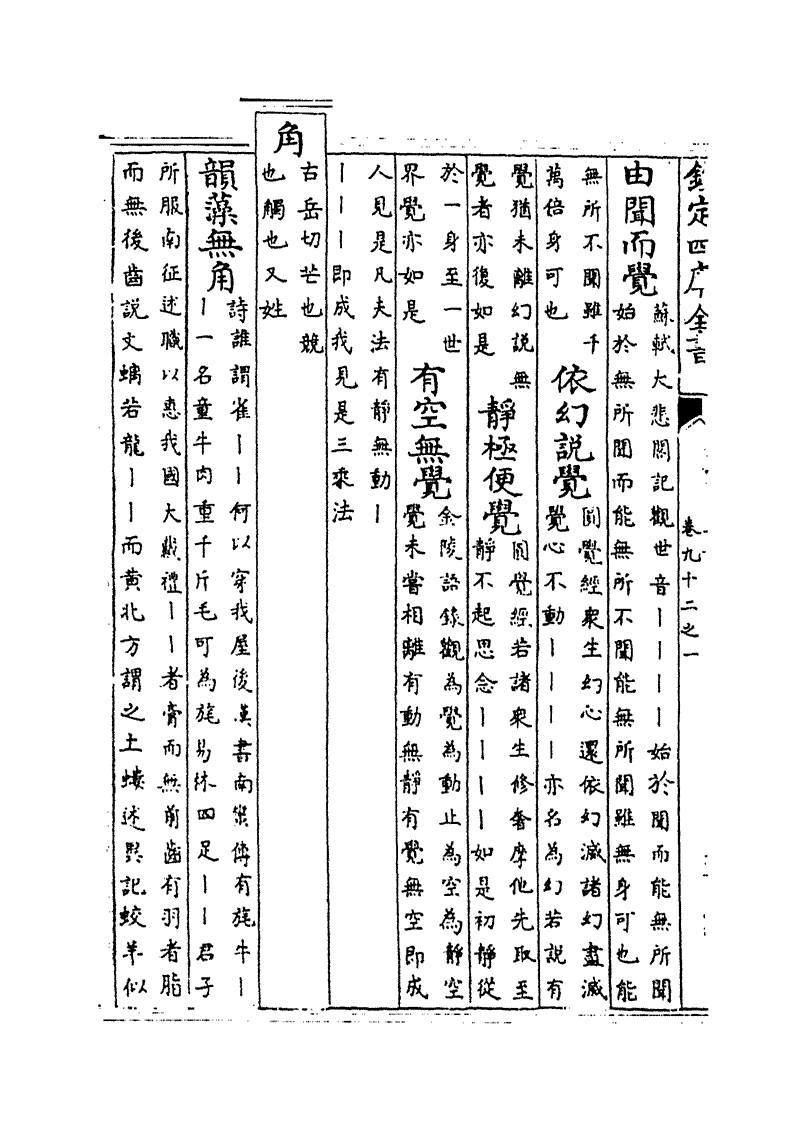 欽定四庫全書
卷九十二之一
由聞而覺 蘇軾大悲閣記觀世音||||始於聞而能無所聞
始於無所聞而能無所不聞能無所聞雖無身可也能
無所不聞雖千
萬倍身可也
依幻説覺 圓覺經衆生幻心還依幻滅諸幻盡滅
覺心不動||||亦名為幻若説有
覺猶未離幻説無
覺者亦復如是
靜極便覺 圓覺經若諸衆生修奢摩他先取至
靜不起思念||||如是初靜從
於一身至一世
界覺亦如是
有空無覺 金陵語錄觀為覺為動止為空為靜空
覺未嘗相離有動無靜有覺無空即成
人見是凡夫法有靜無動|
|||即成我見是三乘法
角
古岳切芒也競
也觸也又姓
韻藻無角 詩誰謂雀||何以穿我屋後漢書南蠻傳有旄牛|
|一名童牛肉重千斤毛可為旄易林四足||君子
所服南征述職以惠我國大戴禮||者膏而無前齒有羽者脂
而無後齒説文螭若龍||而黄北方謂之土螻述異記蛟羊似